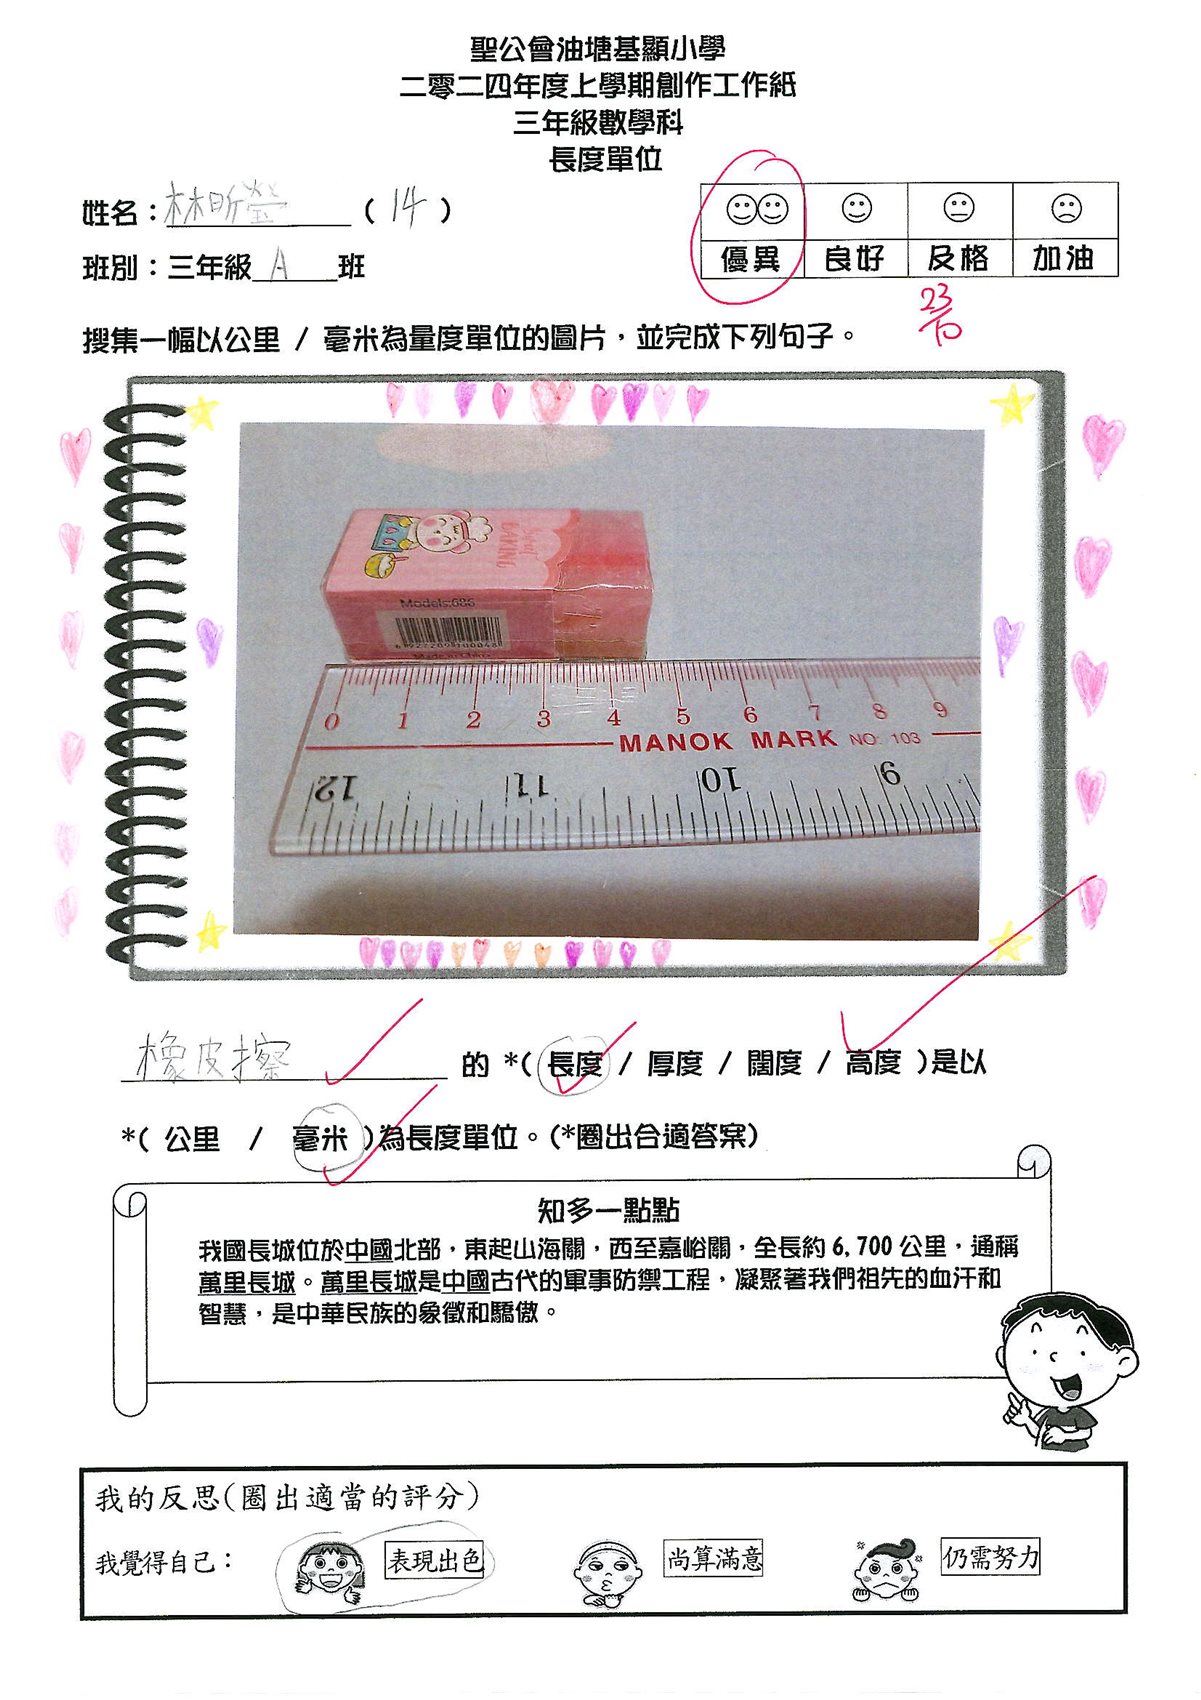 聖公會油塘基顯小學
二零二四年度上學期創作工作紙
三年級數學科
長度單位
姓名：林昕瑩 ( 14 )
班別：三年級 A 班
優異 良好 及格 加油
23/10
搜集一幅以公里 / 毫米為量度單位的圖片，並完成下列句子。
Models:686
6927209100048
Made in China
0 1 2 3 4 5 6 7 8 9
MANOK MARK NO: 103
12 11 10 9
橡皮擦 的 *( 長度 / 厚度 / 闊度 / 高度 )是以
*( 公里 / 毫米 )為長度單位。(*圈出合適答案)
知多一點點
我國長城位於中國北部，東起山海關，西至嘉峪關，全長約 6,700 公里，通稱
萬里長城。萬里長城是中國古代的軍事防禦工程，凝聚著我們祖先的血汗和
智慧，是中華民族的象徵和驕傲。
我的反思(圈出適當的評分)
我覺得自己： 表現出色 尚算滿意 仍需努力